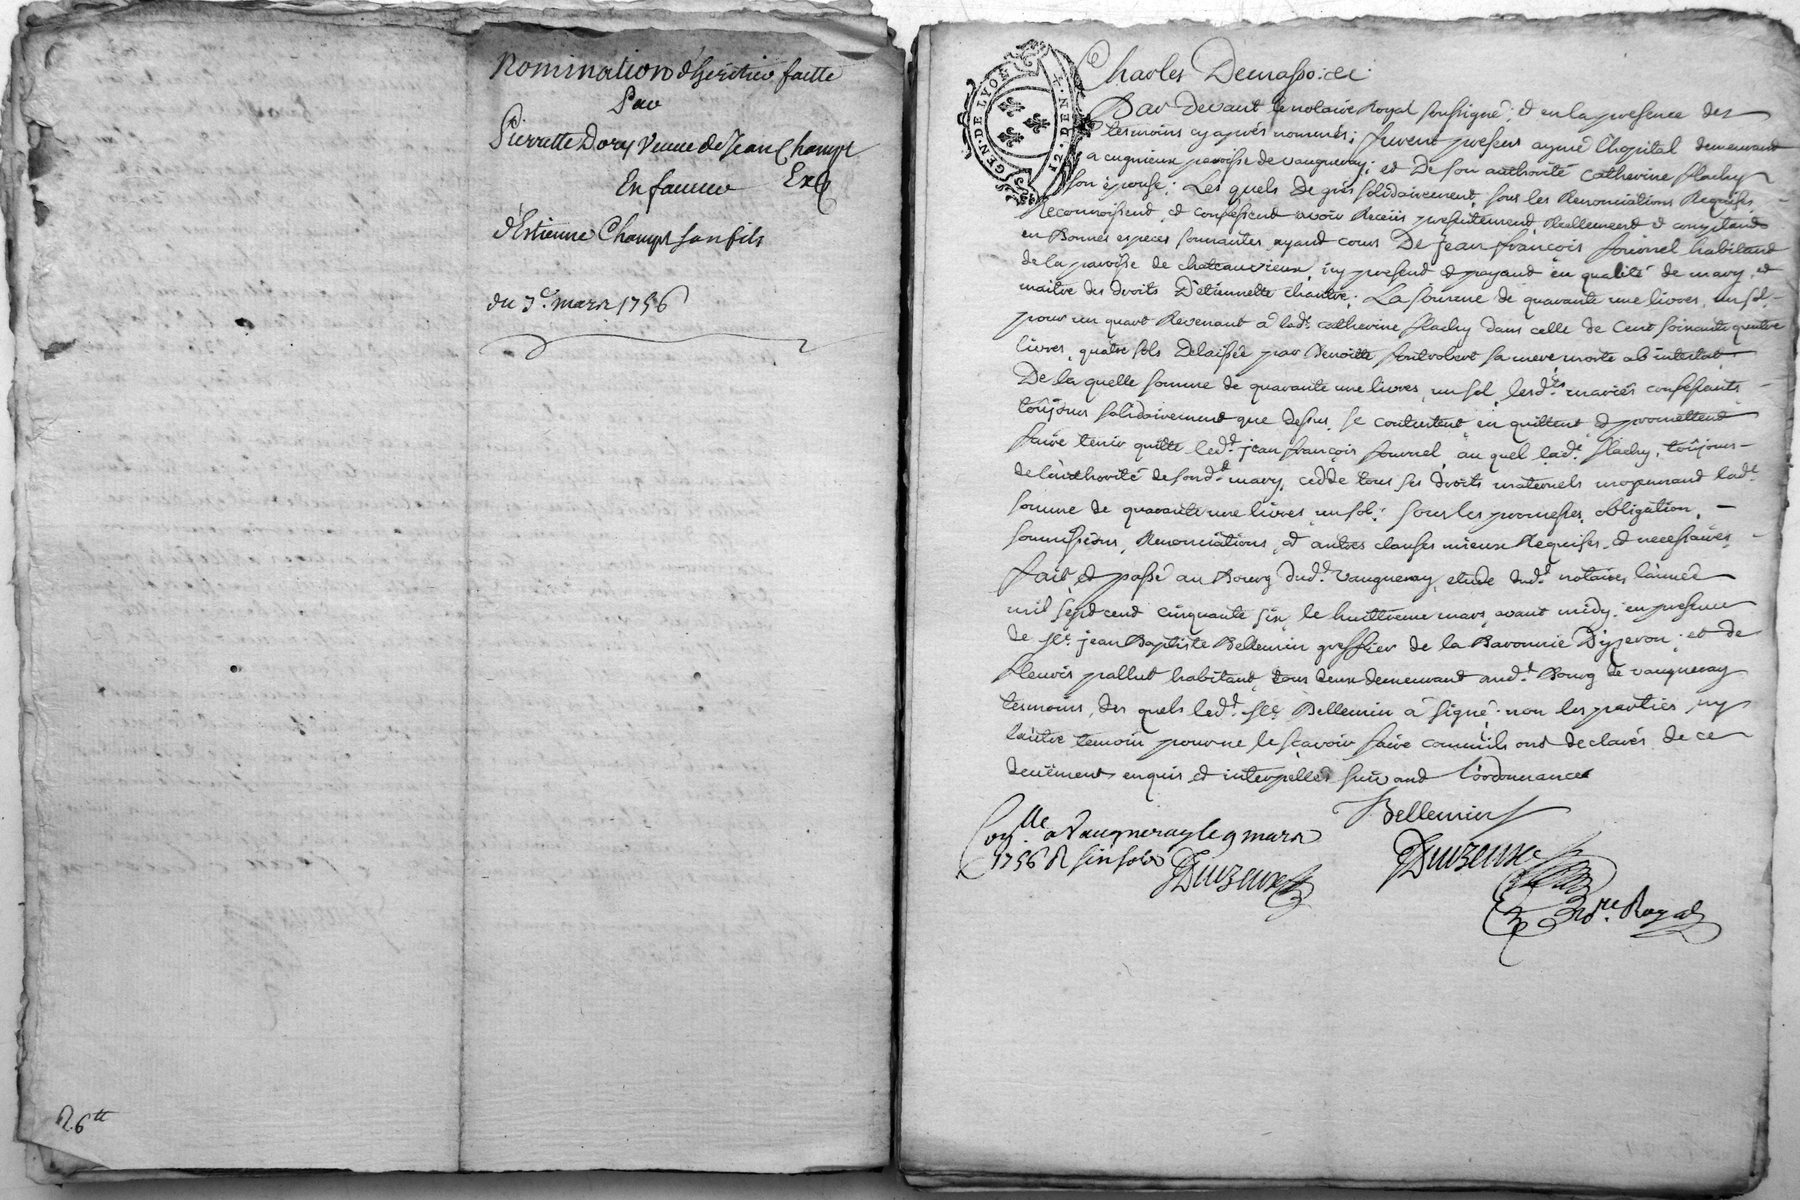 Nomination d'heritier faitte
Par
Pierrette Dory Veuve de Jean Champt
En faveur Exp
d'Estienne Champt son fils
du 7e. mars 1756
R 6tt
GEN. DE LYON
12. DEN.
Charles Demasso: &c.
Par devant le notaire Royal soussigné, et en la presence des
tesmoins cy après nommés; furent presens aymé L'hopital demeurant
a cuznieux paroisse de vaugneray; et De son authorité catherine flachy
son épouse; Les quels De gré solidairement, sous les Renonciations Requises
Reconnoissent, et confessent avoir Receus presentement, Reellement et comptant
en Bonnes especes sonnantes, ayant cours De jean françois fournel habitant
de la paroisse de chateauvieux, icy present et payant en qualité de mary, et
maitre des droits D'etiennette chantre; La somme de quarante une livres, un sol
pour un quart Revenant à lade. catherine flachy dans celle de Cent soixante quatre
livres, quatre sols Delaissée par Benoitte fontrobert sa mere morte ab intestat
De la quelle somme de quarante une livres, un sol, lesdts. mariés confessants
toujours solidairement que dessus, se contentent, en quittent, et promettent
faire tenir quitte ledt. jean françois fournel, au quel lade. flachy, toûjours
de l'authorité de sondt. mary, cedde tous ses droits maternels moyennant lade.
somme de quarante une livres, un sol; sous les promesses, obligation,
soumissions, Renonciations, et autres clauses mieux Requises, et necessaires,
fait et passé au Bourg dudt. Vaugneray, etude dudt. notaire, L'année
mil sept cent cinquante six, le huittieme mars, avant midy, en presence
de sr. jean Baptiste Bellemin greffier de la Baronnie D'yzeron; et de
fleuris pallut habitant, tous deux demeurant audt. Bourg de vaugneray
tesmoins, des quels ledt. sr. Bellemin a signé; non les parties, ny
l'autre temoin pour ne le sçavoir faire comm'ils ont declarés, de ce
deuëment enquis, et interpellés suivant L'ordonnance
Bellemin
Conlle a Vaugneray le 9 mars
1756 R six sols